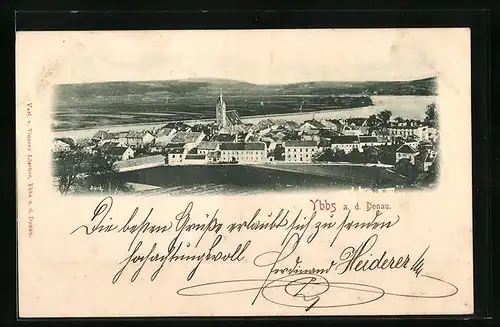 Ybbs a. d. Donau.
Verl. v. Vincenz Löscher, Ybbs a. d. Donau.
Die besten Grüße erlaubt sich zu senden
hochachtungsvoll
Ferdinand Heiderer